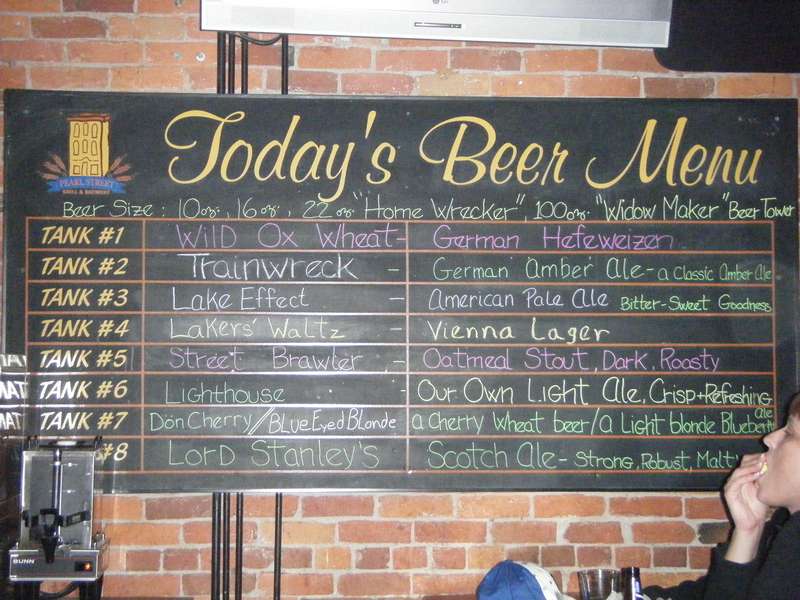 Today's Beer Menu
PEARL STREET
GRILL & BREWERY
Beer Size: 10oz., 16oz., 22oz. "Home Wrecker", 100oz. "Widow Maker" Beer Tower
TANK #1 Wild Ox Wheat - German Hefeweizen
TANK #2 Trainwreck - German Amber Ale - a classic Amber Ale
TANK #3 Lake Effect - American Pale Ale Bitter-Sweet Goodness
TANK #4 Lakers' Waltz - Vienna Lager
TANK #5 Street Brawler - Oatmeal Stout, Dark, Roasty
TANK #6 Lighthouse - Our Own Light Ale, Crisp + Refreshing
TANK #7 Don Cherry // Blue Eyed Blonde a Cherry Wheat beer / a Light blonde Blueberry Ale
#8 Lord Stanley's Scotch Ale - Strong, Robust, Malt
BUNN